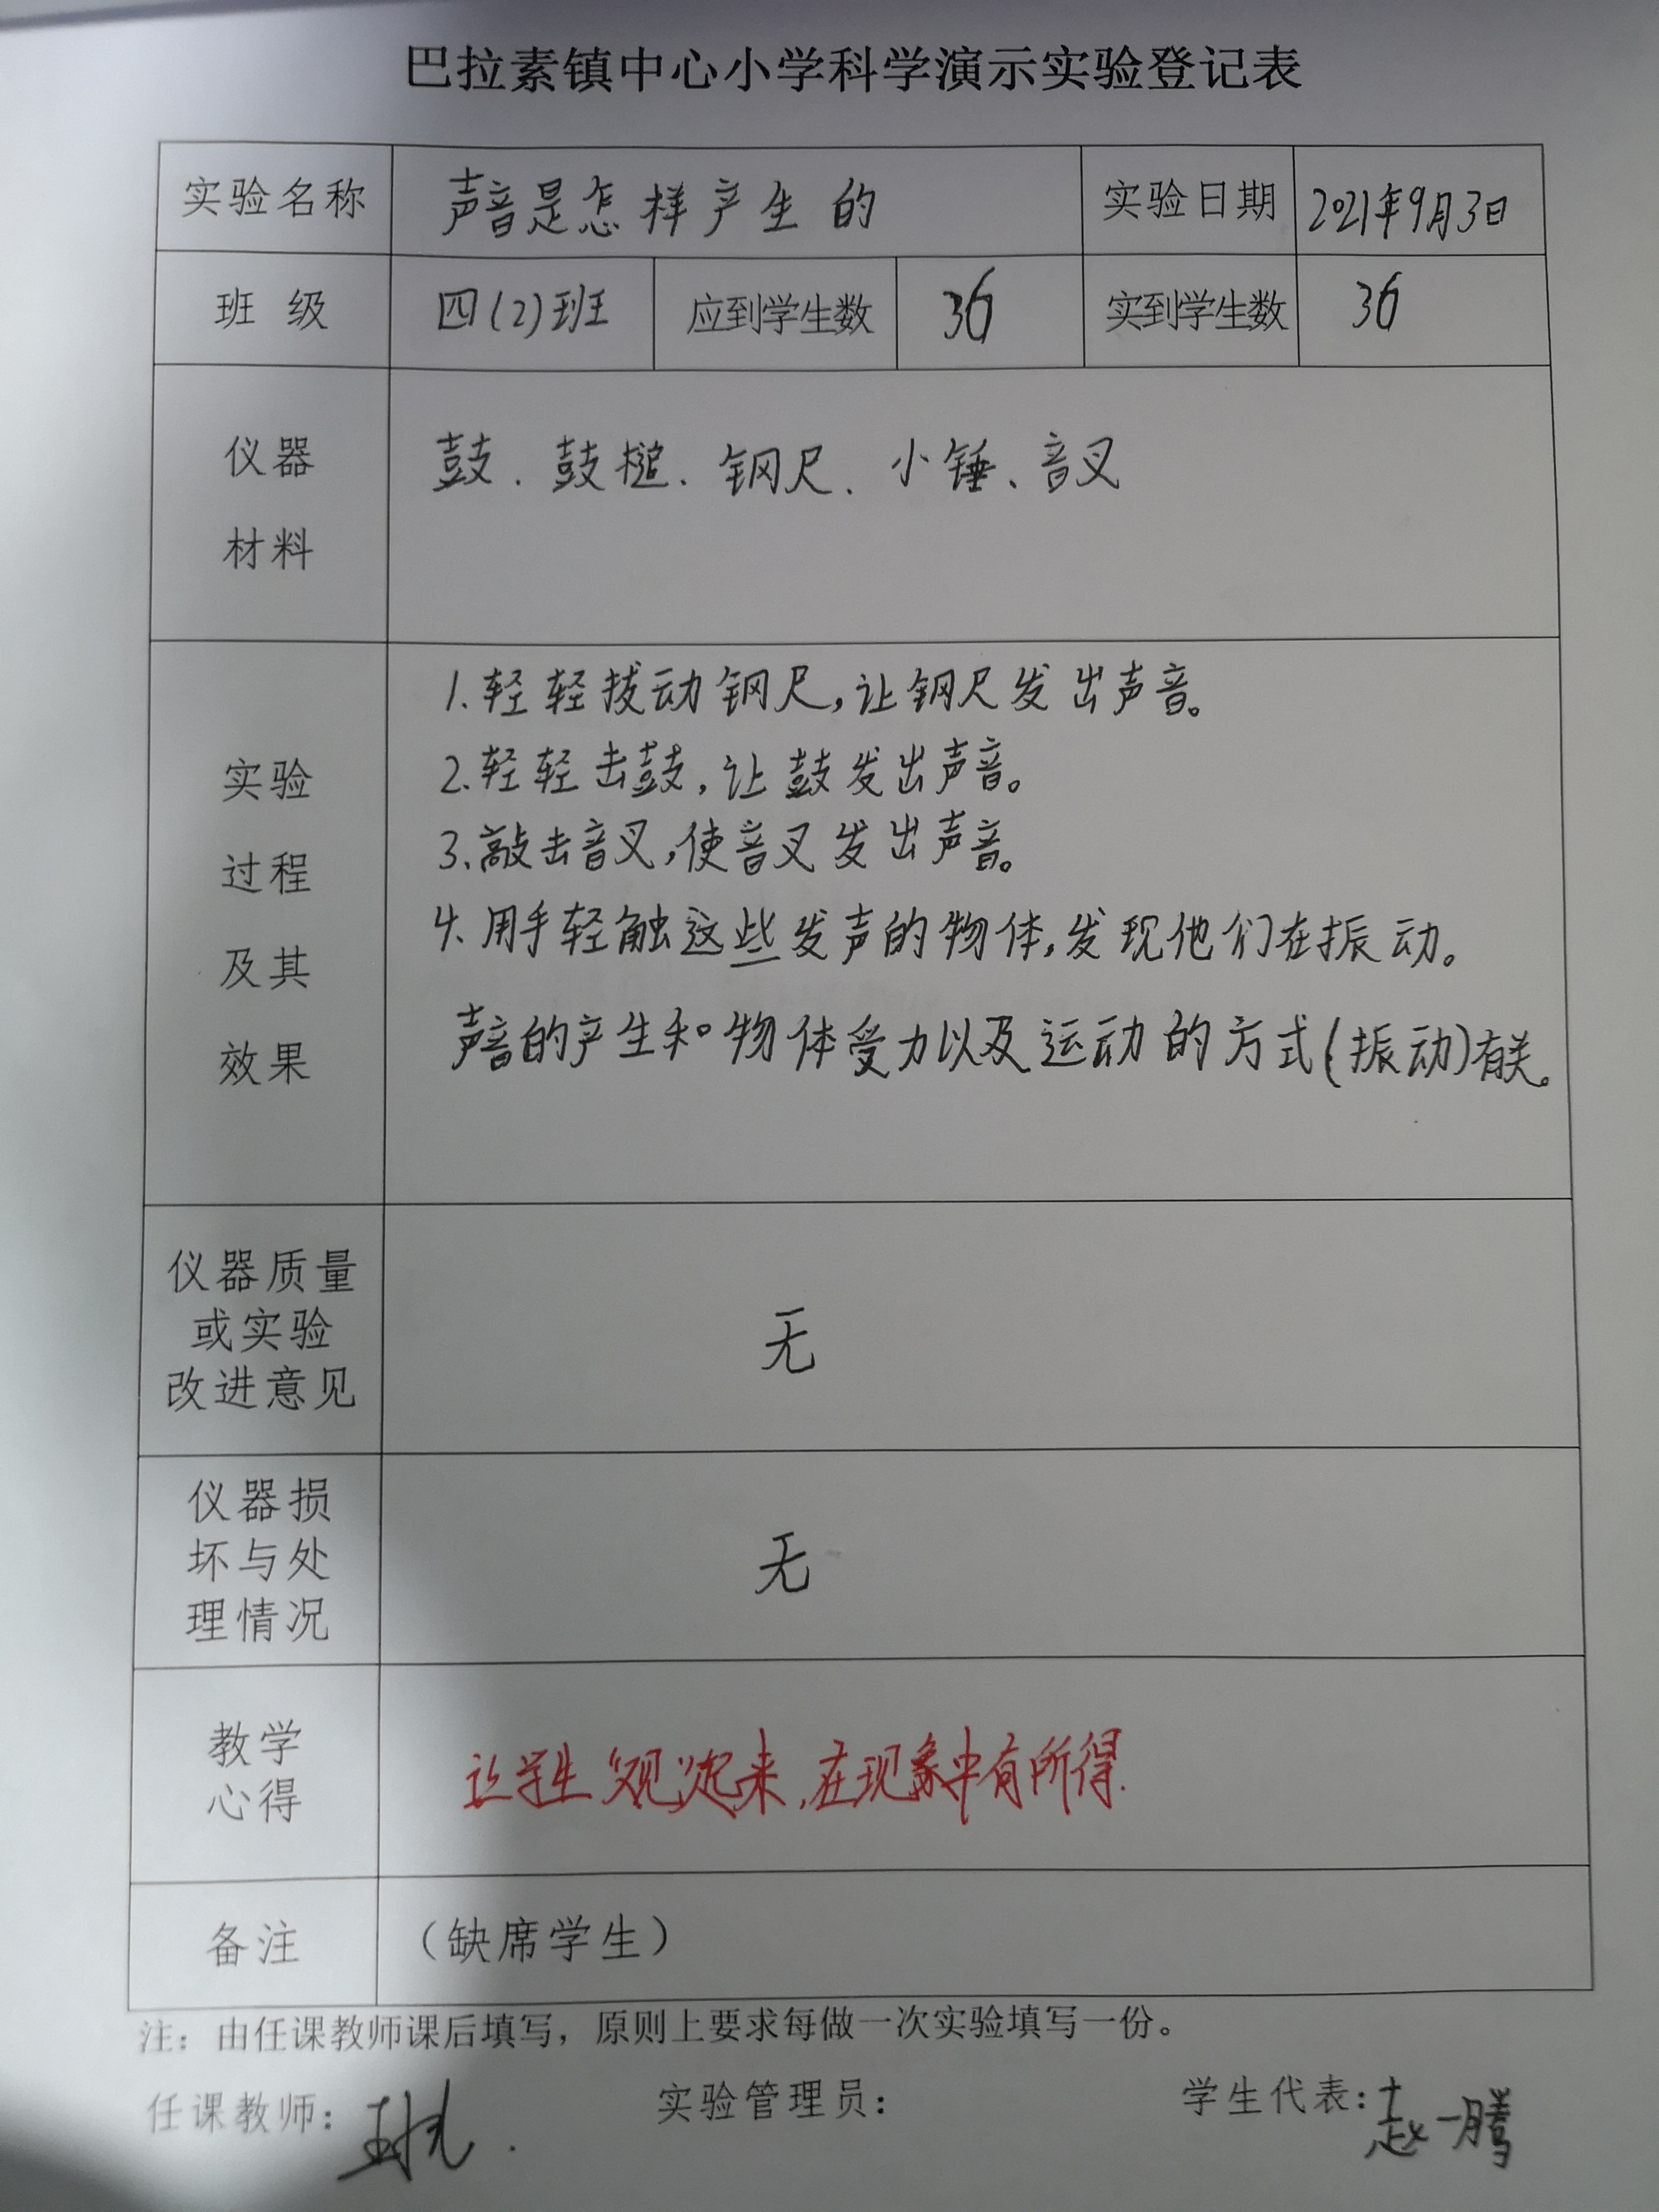 巴拉素镇中心小学科学演示实验登记表
实验名称 声音是怎样产生的 实验日期 2021年9月3日
班 级 四(2)班 应到学生数 36 实到学生数 36
仪器
材料
鼓、鼓槌、钢尺、小锤、音叉
实验
过程
及其
效果
1.轻轻拨动钢尺,让钢尺发出声音。
2.轻轻击鼓,让鼓发出声音。
3.敲击音叉,使音叉发出声音。
4.用手轻触这些发声的物体,发现他们在振动。
声音的产生和物体受力以及运动的方式(振动)有关。
仪器质量
或实验
改进意见
无
仪器损
坏与处
理情况
无
教学
心得
让学生“观”起来,在现象中有所得.
备注 （缺席学生）
注：由任课教师课后填写，原则上要求每做一次实验填写一份。
任课教师： 实验管理员： 学生代表：赵一腾